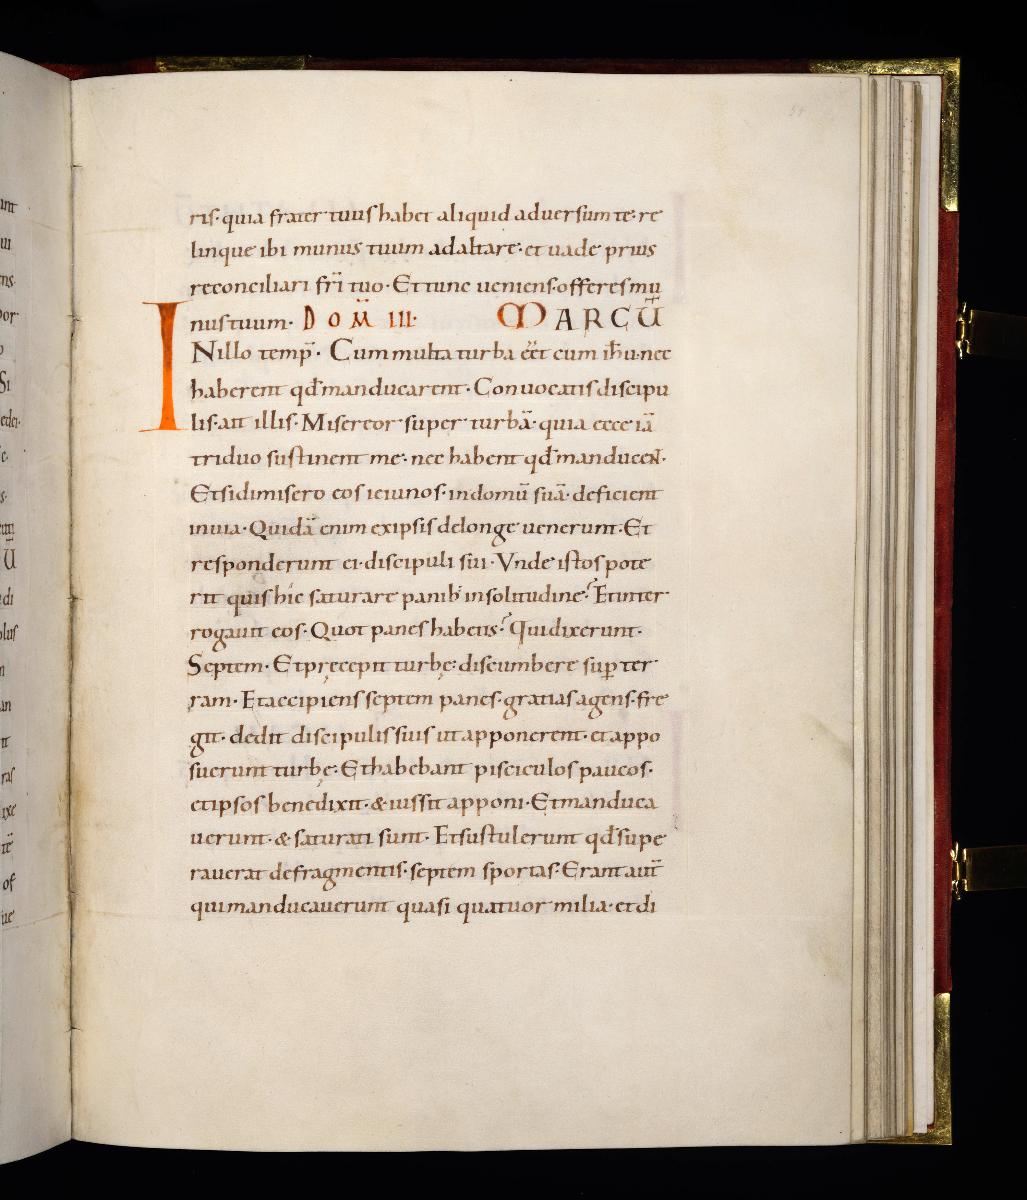 ris· quia frater tuus habet aliquid adversum te· re
linque ibi munus tuum ad altare· et uade prius
reconciliari fr̄i tuo· Et tunc ueniens offeres mu
nus tuum· DOM̄ III· MARCŪ
INillo temp̄· Cum multa turba eēt cum ih̄u· nec
haberent qd̄ manducarent· Conuocatis discipu
lis· ait illis· Misereor super turbā· quia ecce iā
triduo sustinent me· nec habent qd̄ manducent·
Et si dimisero eos ieiunos· in domū suā· deficient
in uia· Quidā enim ex ipsis de longe uenerunt· Et
responderunt ei discipuli sui· Vnde istos pote
rit quis hic saturare panib· in solitudine? Et inter
rogauit eos· Quot panes habetis? Qui dixerunt·
Septem· Et precepit turbę· discumbere sup̄ ter
ram· Et accipiens septem panes· gratias agens· fre
git· dedit discipulis suis ut apponerent· et appo
suerunt turbę· Et habebant pisciculos paucos·
et ipsos benedixit· & iussit apponi· Et manduca
uerunt· & saturati sunt· Et sustulerunt qd̄ supe
rauerat de fragmentis· septem sportas· Erant aut̄
qui manducauerunt quasi quatuor milia· et di